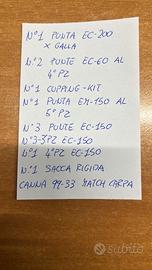 N°1 PUNTA EC-200
X GALLA
N°2 PUNTE EC-60 AL
4° PZ
N°1 CUPPING-KIT
N°1 PUNTA EM-150 AL
5° PZ
N°3 PUNTE EC-150
N°3-3PZ EC-150
N°1 4°PZ EC-150
N°1 SACCA RIGIDA
CANNA 99-33 MATCH CARPA
subito